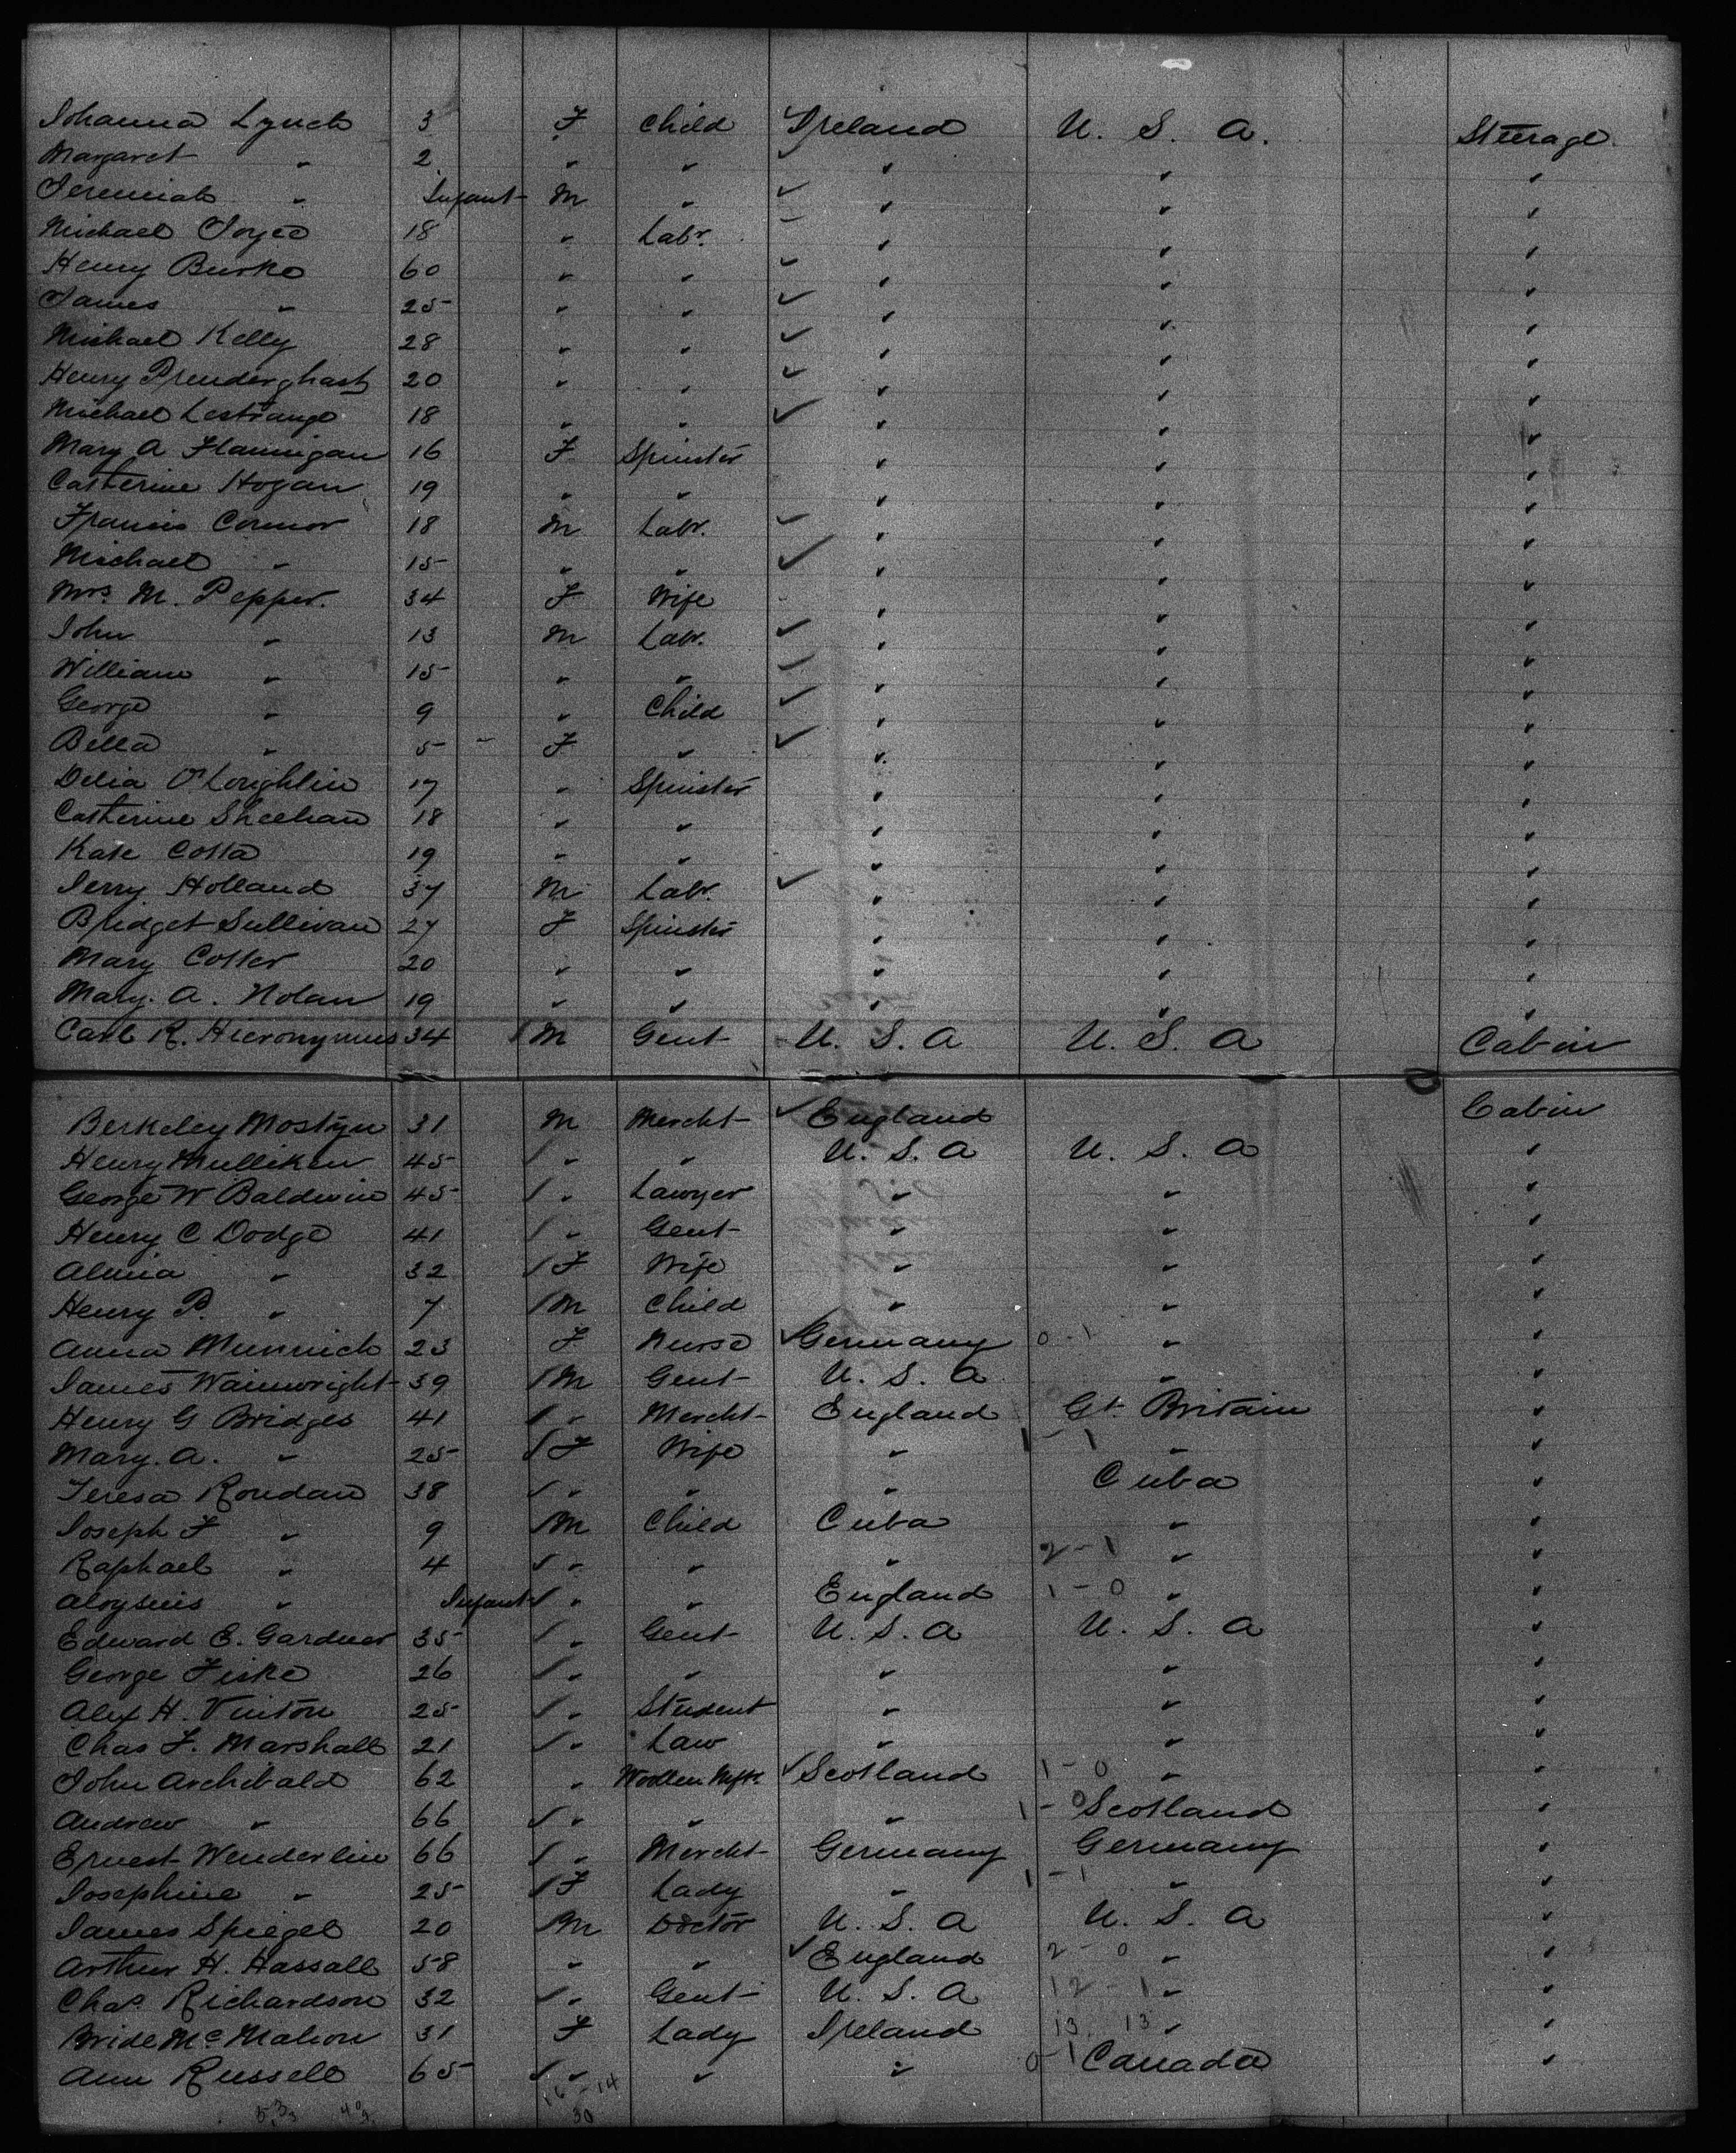 Johanna Lynch 3 F Child Ireland U. S. A. Steerage
Margaret " 2 " " " " "
Jeremiah " Infant M " " " "
Michael Joyce 18 " Labr. " " "
Henry Burke 60 " " " " "
James " 25 " " " " "
Michael Kelly 28 " " " " "
Henry Prenderghast 20 " " " " "
Michael Lestrange 18 " " " " "
Mary A Flannigan 16 F Spinster " " "
Catherine Hogan 19 " " " " "
Francis Connor 18 M Labr. " " "
Michael " 15 " " " " "
Mrs. M. Pepper. 34 F Wife " " "
John " 13 M Labr. " " "
William " 15 " " " " "
George " 9 " Child " " "
Bella " 5 F " " " "
Delia O'Loughlin 17 " Spinster " " "
Catherine Sheehan 18 " " " " "
Kate Cotta 19 " " " " "
Jerry Holland 37 M Labr. " " "
Bridget Sullivan 27 F Spinster " " "
Mary Cotter 20 " " " " "
Mary. A. Nolan 19 " " " " "
Carl R. Hieronymus 34 M Gent U. S. A U. S. A Cabin
Berkeley Mostyn 31 M Mercht England Cabin
Henry Mulliken 45 " " U. S. A U. S. A "
George W Baldwin 45 " Lawyer " " "
Henry C Dodge 41 " Gent " " "
Almia " 32 F Wife " " "
Henry P. " 7 M Child " " "
Anna Munnich 23 F Nurse Germany 0-1 " "
James Wainwright 39 M Gent U. S. A " "
Henry G Bridges 41 " Mercht England Gt. Britain "
Mary. A. " 25 F Wife " 1-1 " "
Teresa Roudan 38 " " " Cuba "
Joseph F " 9 M Child Cuba " "
Raphael " 4 " " " 2-1 " "
Aloysius " Infant " " England 1-0 " "
Edward E. Gardner 35 " Gent U. S. A U. S. A "
George Fiske 26 " " " " "
Alex H. Vinton 25 " Student " " "
Chas F. Marshall 21 " Law " " "
John Archibald 62 " Woollen Mfr. Scotland 1-0 " "
Andrew " 66 " " " 1-0 Scotland "
Ernest Wenderlin 66 " Mercht Germany Germany "
Josephine " 25 F Lady " 1-1 " "
James Spiegel 20 M Doctor U. S. A U. S. A "
Arthur H. Hassall 58 " " England 2-0 " "
Chas. Richardson 32 " Gent U. S. A 12-1 " "
Bride McMahon 31 F Lady Ireland 13. 13 " "
Ann Russell 65 " " " 0-1 Canada "
16-14
30